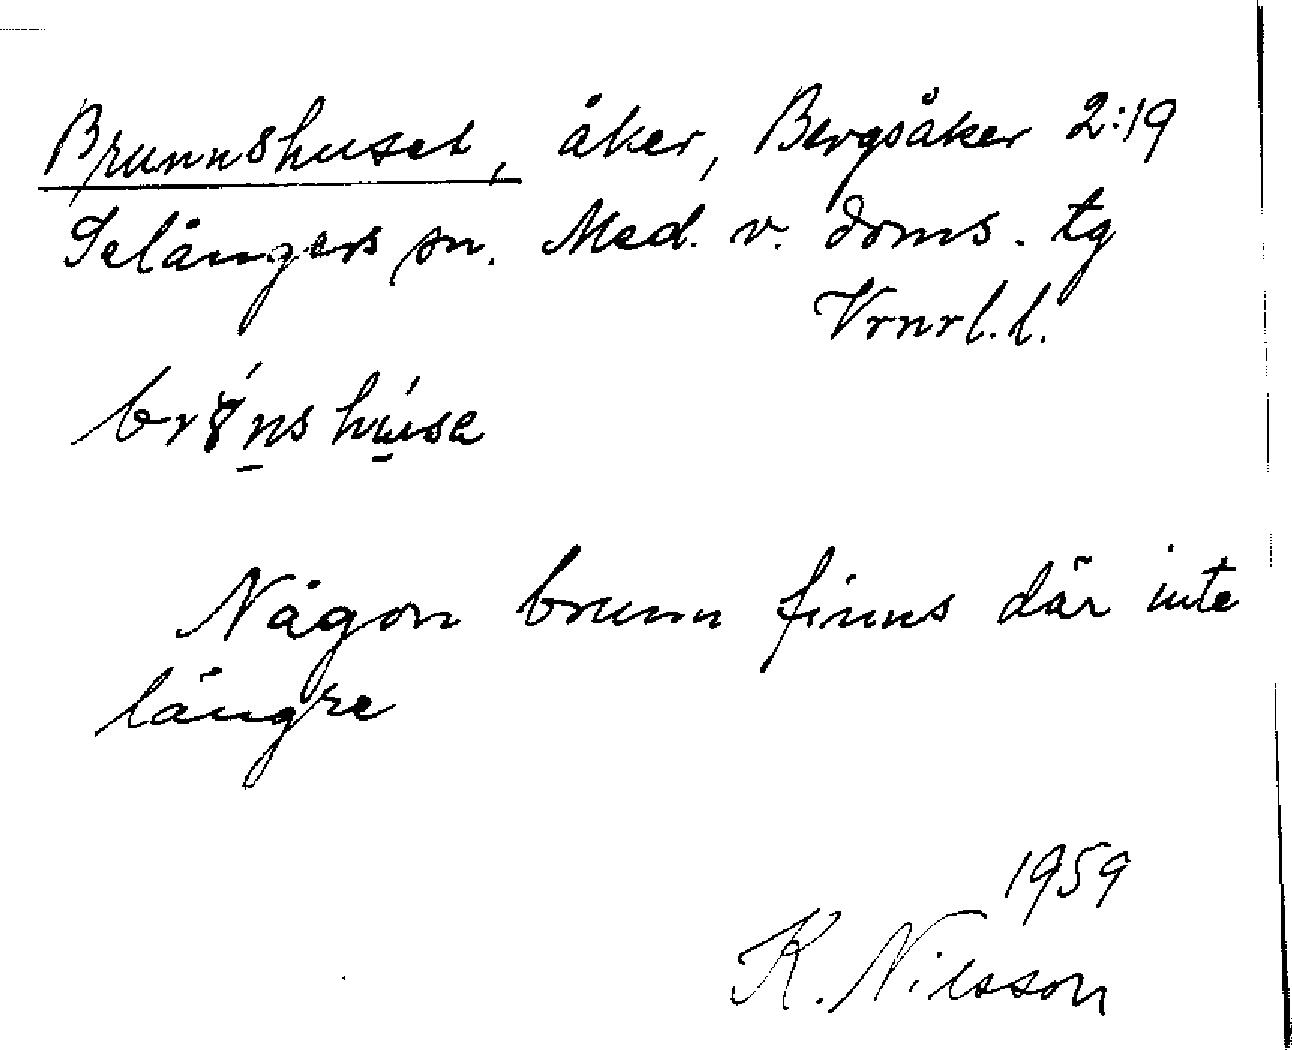 Brunnshuset, åker, Bergsåker 2:19
Selångers sn. Med. v. doms. tg
Vrnrl.l.
Någon brunn finns där inte
längre
1959
K. Nilsson